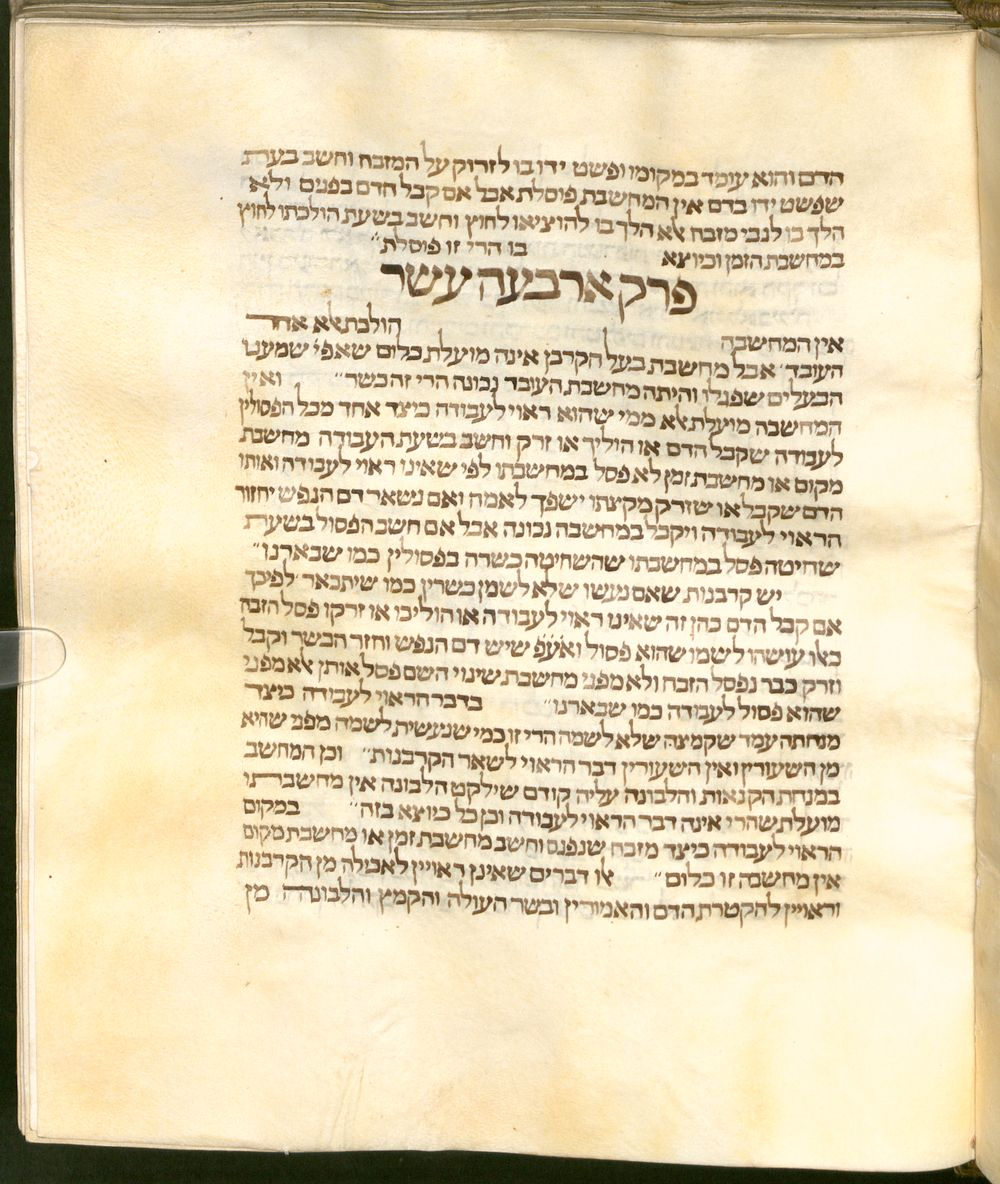 הדם והוא עומד במקומו ופשט ידו בו לזרוק על המזבח וחשב בעת
שפשט ידו בדם אין המחשבת פוסלת אבל אם קבל הדם בפנים ולא
הלך בו לגבי מזבח אלא הלך בו להוציאו לחוץ וחשב בשעת הולכתו לחוץ
במחשבת הזמן וכיוצא בו הרי זו פוסלת״
פרק ארבעה עשר
אין המחשבה הולכת אלא אחר
העובד׳ אבל מחשבת בעל הקרבן אינה מועלת כלום שאפי׳ שמענו
הבעלים שפגלו והיתה מחשבת העובד נכונה הרי זה כשר״ ואין
המחשבה מועלת אלא ממי שהוא ראוי לעבודה כיצד אחד מכל הפסולין
לעבודה שקבל הדם או הוליך או זרק וחשב בשעת העבודה מחשבת
מקום או מחשבת זמן לא פסל במחשבתו לפי שאינו ראוי לעבודה ואותו
הדם שקבל או שזרק מקצתו ישפך לאמה ואם נשאר דם הנפש יחזור
הראוי לעבודה ויקבל במחשבה נכונה אבל אם חשב הפסול בשעת
שחיטה פסל במחשבתו שהשחיטה כשרה בפסולין כמו שבארנו״
יש קרבנות שאם נעשו שלא לשמן כשרין כמו שיתבאר לפיכך
אם קבל הדם כהן זה שאינו ראוי לעבודה או הוליכו או זרקו פסל הזבח
כאלו עושהו לשמו שהוא פסול ואע״פ שיש דם הנפש וחזר הכשר וקבל
וזרק כבר נפסל הזבח ולא מפני מחשבת שינוי השם פסל אותן אלא מפני
שהוא פסול לעבודה כמו שבארנו״ בדבר הראוי לעבודה כיצד
מנחת העמר שקמצה שלא לשמה הרי זו כמי שנעשית לשמה מפני שהיא
מן השעורין ואין השעורין דבר הראוי לשאר הקרבנות״ וכן המחשב
במנחת הקנאות והלבונה עליה קודם שילקט הלבונה אין מחשבתו
מועלת שהרי אינה דבר הראוי לעבודה וכן כל כיוצא בזה״ במקום
הראוי לעבודה כיצד מזבח שנפגם וחשב מחשבת זמן או מחשבת מקום
אין מחשבה זו כלום״ אלו דברים שאינן ראויין לאכילה מן הקרבנות
וראויין להקטרת הדם והאמורין ובשר העולה והקמץ והלבונה מן